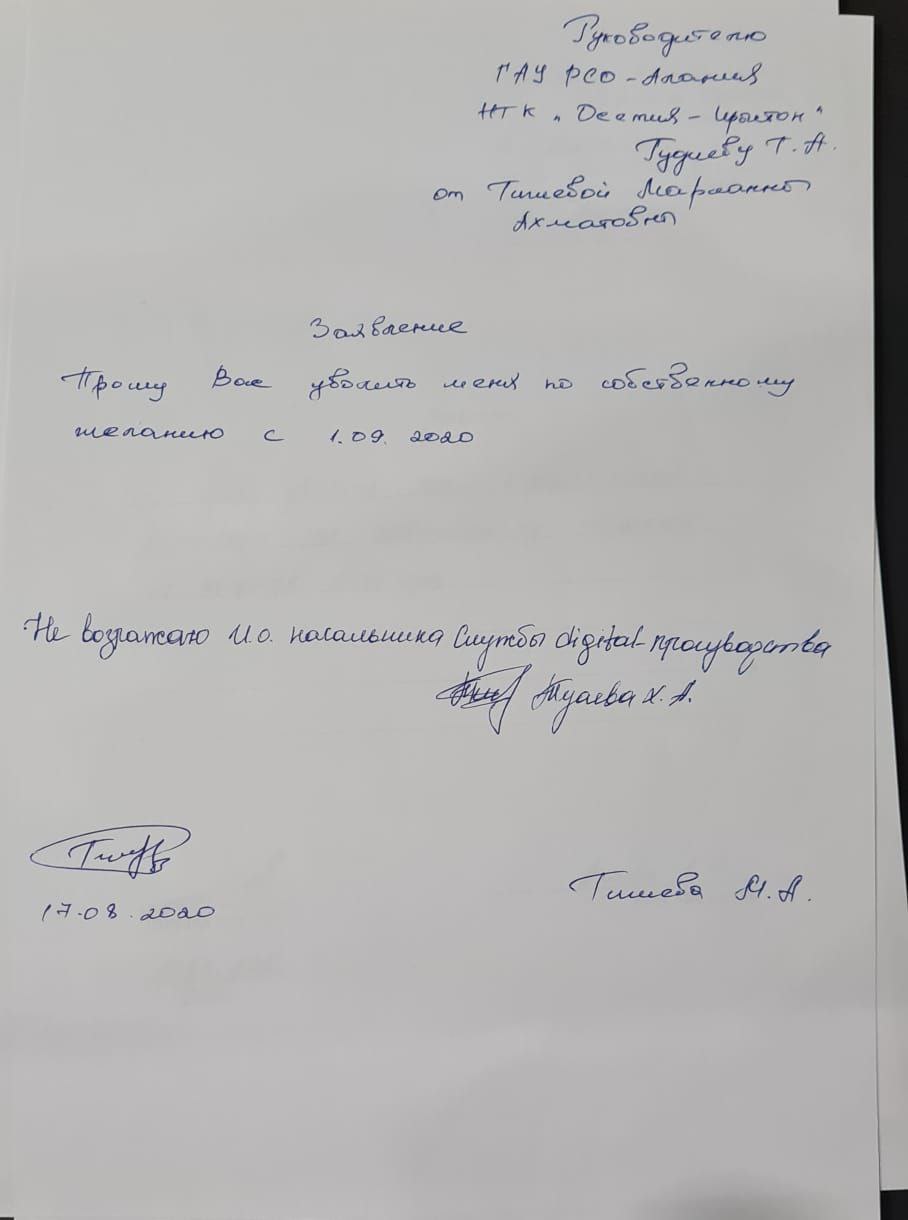 Руководителю
ГАУ РСО-Алания
НТК "Осетия-Ирыстон"
Гудиеву Т.А.
от Тишевой Марианны
Ахматовны
Заявление
Прошу Вас уволить меня по собственному
желанию с 1.09.2020
Не возражаю И.о. начальника Службы digital-производства
Туаева Х.А.
17.08.2020
Тишева М.А.